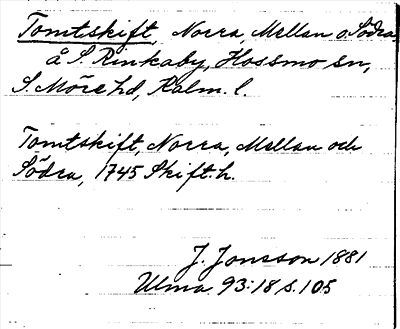 Tomtskift, Norra, Mellan o. Södra,
å S. Rinkaby, Hossmo sn,
S. Möre hd, Kalm. l.
Tomtskift, Norra, Mellan och
Södra, 1745 Skift. h.
J. Jonsson 1881
Ulma. 93:18 s. 105